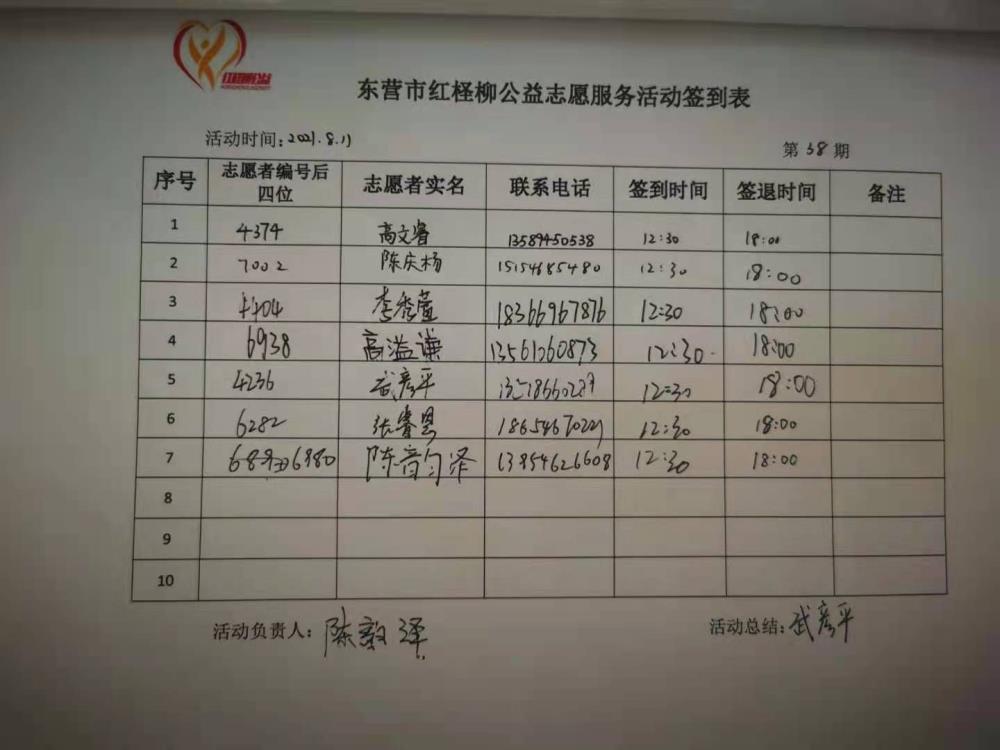 红柽柳公益
东营市红柽柳公益志愿服务活动签到表
活动时间:2021.8.11
第38期
序号 志愿者编号后四位 志愿者实名 联系电话 签到时间 签退时间 备注
1 4374 高文睿 13589450538 12:30 18:00
2 7002 陈庆杨 15154685480 12:30 18:00
3 李秀萱 18366967876 12:30 18:00
4 6938 高溢谦 13561260873 12:30 18:00
5 4236 武彦平 12:30 18:00
6 6282 张睿恩 12:30 18:00
7 6980 陈音匀泽 13954626608 12:30 18:00
8
9
10
活动负责人:陈敦泽
活动总结:武彦平